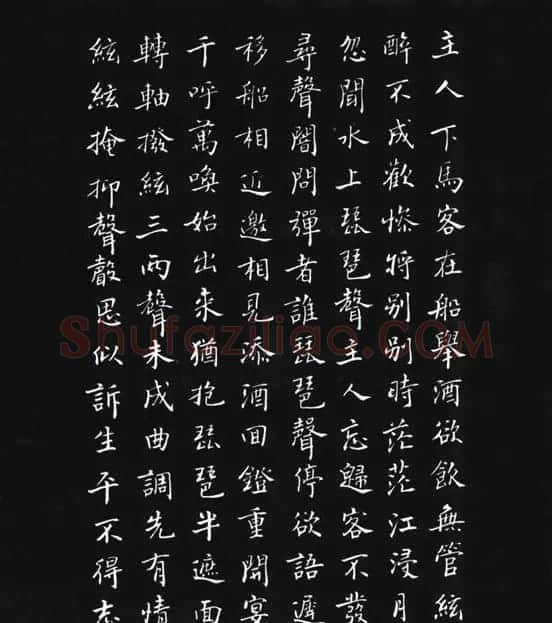 主人下馬客在船舉酒欲飲無管絃
醉不成歡慘將别别時茫茫江浸月
忽聞水上琵琶聲主人忘歸客不發
尋聲闇問彈者誰琵琶聲停欲語遲
移船相近邀相見添酒回鐙重開宴
千呼萬喚始出來猶抱琵琶半遮面
轉軸撥絃三兩聲未成曲調先有情
絃絃掩抑聲聲思似訴生平不得志
Shufaziliao.COM